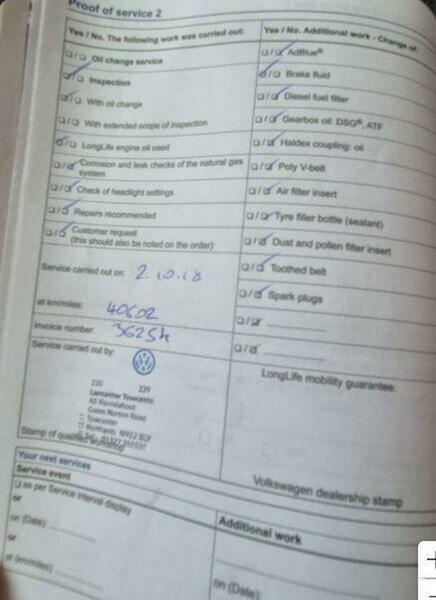 Proof of service 2
Yes / No. The following work was carried out:
☐/☐ Oil change service
☑/☐ Inspection
☑/☐ With oil change
☐/☐ With extended scope of inspection
☑/☐ LongLife engine oil used
☐/☑ Corrosion and leak checks of the natural gas system
☐/☑ Check of headlight settings
☐/☑ Repairs recommended
☐/☑ Customer request
(this should also be noted on the order)
Service carried out on: 2.10.18
at km/miles: 40602
Invoice number: 36254
Service carried out by:
220 229
Lancaster Towcester
A5 Roundabout
Green Norton Road
Towcester
Northants NN12
Stamp of qualified workshop
Yes / No. Additional work - Change of:
☐/☑ AdBlue®
☑/☐ Brake fluid
☐/☑ Diesel fuel filter
☐/☑ Gearbox oil: DSG®, ATF
☐/☑ Haldex coupling: oil
☐/☑ Poly V-belt
☐/☑ Air filter insert
☐/☑ Tyre filler bottle (sealant)
☐/☑ Dust and pollen filter insert
☐/☑ Toothed belt
☐/☑ Spark plugs
☐/☑
☐/☑
LongLife mobility guarantee:
Volkswagen dealership stamp
Your next services
Service event
☐ as per Service interval display
or
on (Date)
or
at (km/miles)
Additional work
on (Date)